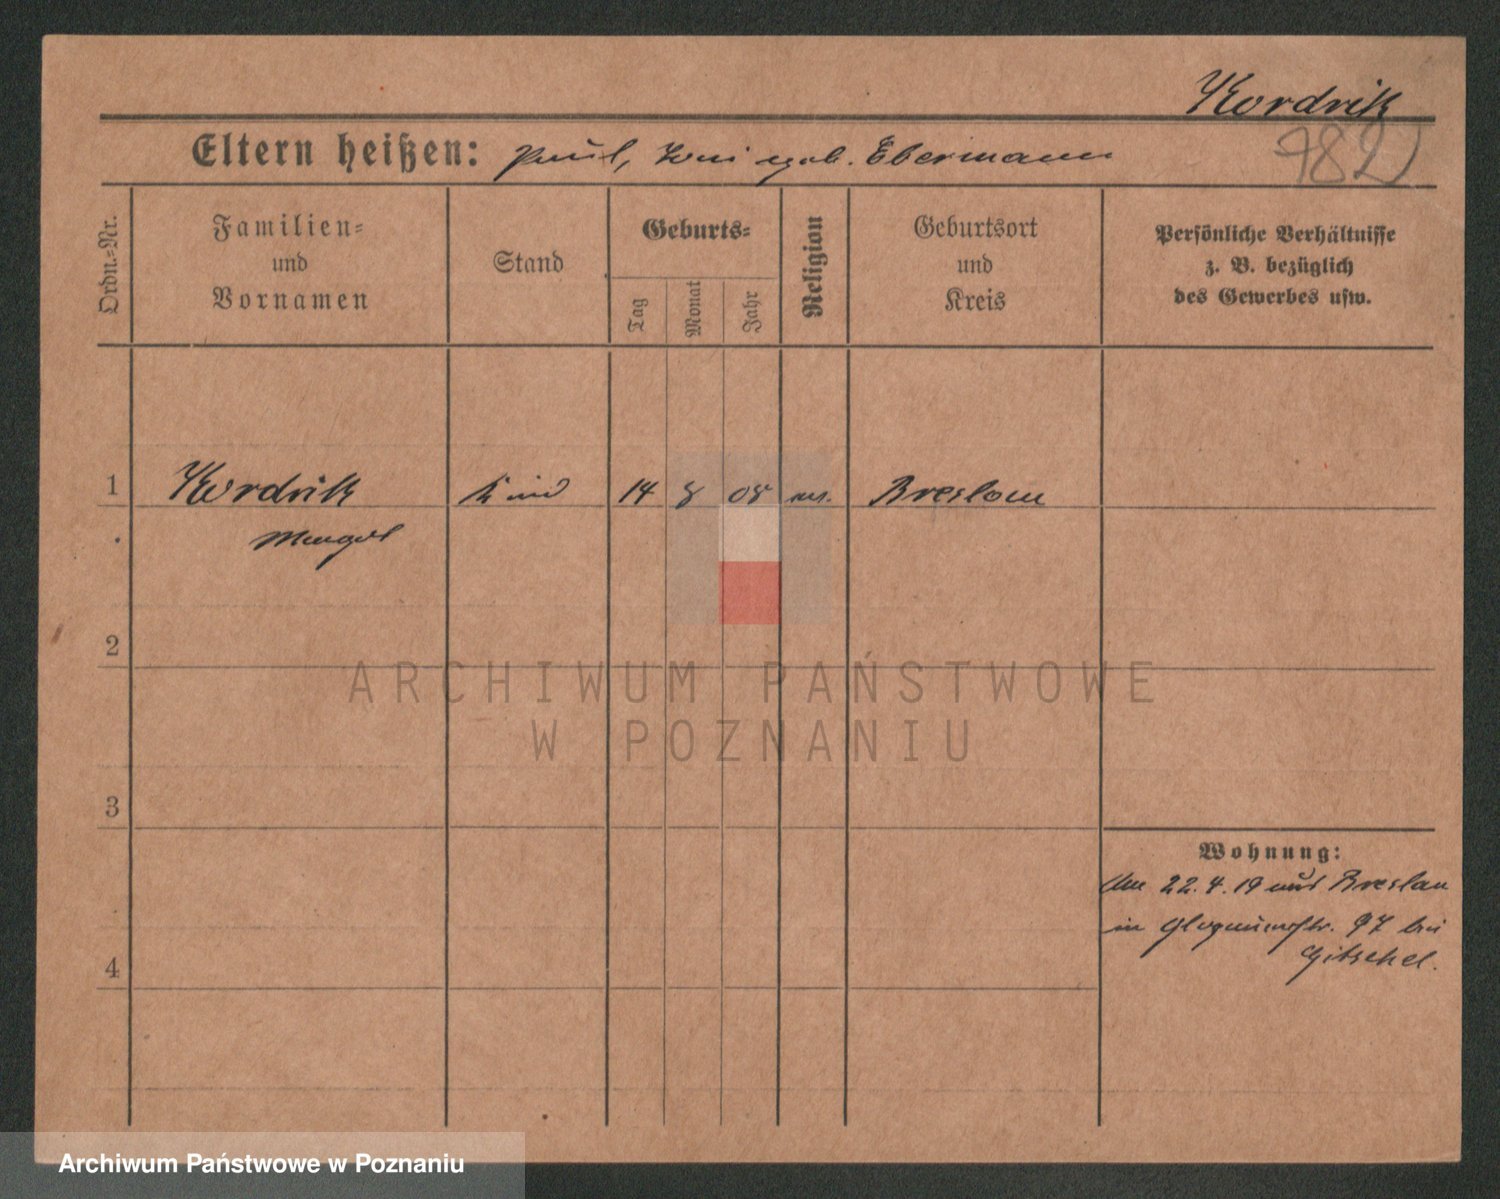 Kordrik
Eltern heißen: Paul, geb. Ebermann
782
Ordn.-Nr.
Familien-
und
Vornamen
Stand
Geburts-
Tag
Monat
Jahr
Religion
Geburtsort
und
Kreis
Persönliche Verhältnisse
z. B. bezüglich
des Gewerbes usw.
1 Kordrik Kind 14 8 08 Breslau
2
3
4
Wohnung:
Am 22.4.19 aus Breslau
in Glogauerstr. 97 bei
Gitschel.
ARCHIWUM PAŃSTWOWE
W POZNANIU
Archiwum Państwowe w Poznaniu